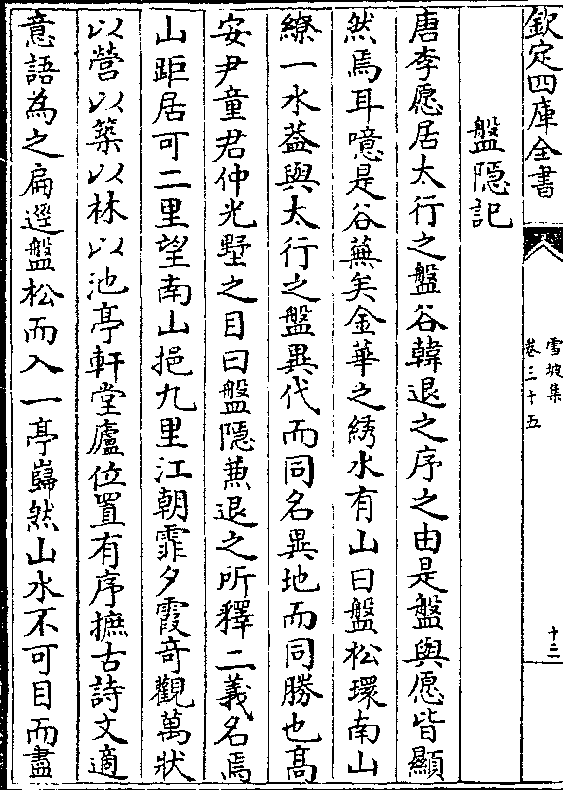 欽定四庫全書
雪坡集
卷三十五
十三
盤隠記
唐李愿居太行之盤谷韓退之序之由是盤與愿皆顯
然焉耳噫是谷蕪矣金華之綉水有山曰盤松環南山
繚一水葢與太行之盤異代而同名異地而同勝也髙
安尹童君仲光墅之目曰盤隠兼退之所釋二義名焉
山距居可二里望南山挹九里江朝霏夕霞奇觀萬狀
以營以築以林以池亭軒堂廬位置有序摭古詩文適
意語為之扁逕盤松而入一亭巋然山水不可目而盡